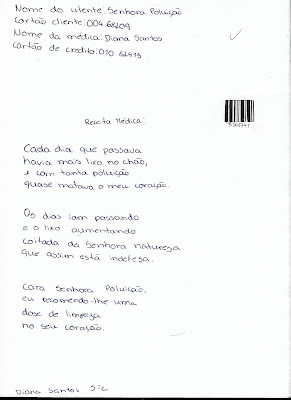 Nome do utente: Senhora Poluição
Cartão cliente: 004 68209
Nome da médica: Diana Santos
Cartão de credito: 010 62419
Receita Médica:
Cada dia que passava
havia mais lixo no chão,
e com tanta poluição
quase matava o meu coração.
Os dias iam passando
e o lixo aumentando
coitada da Senhora natureza
que assim está indefesa.
Cara Senhora Poluição,
eu recomendo-lhe uma
dose de limpeza
no seu coração.
Diana Santos